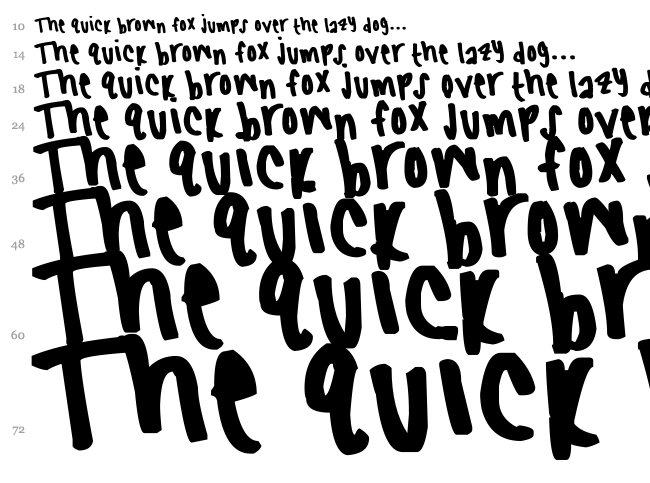 10 The quick brown fox jumps over the lazy dog...
14 The quick brown fox jumps over the lazy dog...
18 The quick brown fox jumps over the lazy d
24 The quick brown fox jumps over
36 The quick brown fox
48 The quick brown
60 The quick br
72 The quick